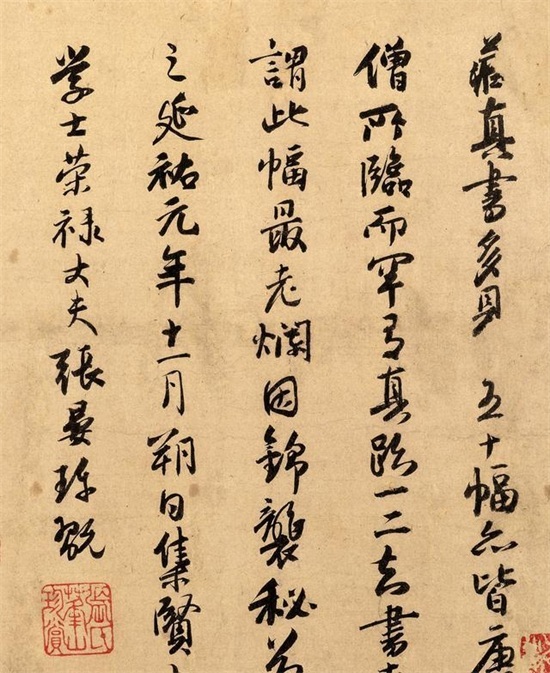 藏真書多見 五十幅亦皆唐
僧所臨而罕有真跡一二知書
謂此幅最老爛因錦襲秘
之延祐元年十一月朔日集賢
学士荣禄大夫張晏珎翫